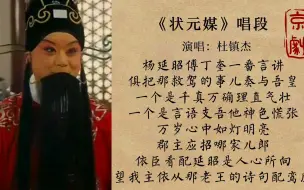 《状元媒》唱段
京劇
演唱：杜镇杰
杨延昭傅丁奎一番言讲
俱把那救驾的事儿奏与吾皇
一个是千真万确理直气壮
一个是言语支吾他神色慌张
万岁心中如灯明亮
郡主应招哪家儿郎
依臣看配延昭是人心所向
望我主依从那老王的诗句配鸾凰